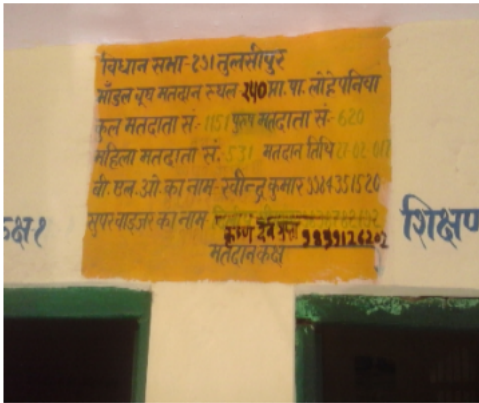 विधान सभा-291 तुलसीपुर
मॉडल बूथ मतदान स्थल 240 प्रा. पा. लोहेपनिया
कुल मतदाता सं.- 1151 पुरुष मतदाता सं.- 620
महिला मतदाता सं. 531 मतदान तिथि
बी.एल.ओ. का नाम- रवीन्द्र कुमार 9984351520
सुपरवाइजर का नाम
कृष्ण देव
मतदान कक्ष
शिक्षण